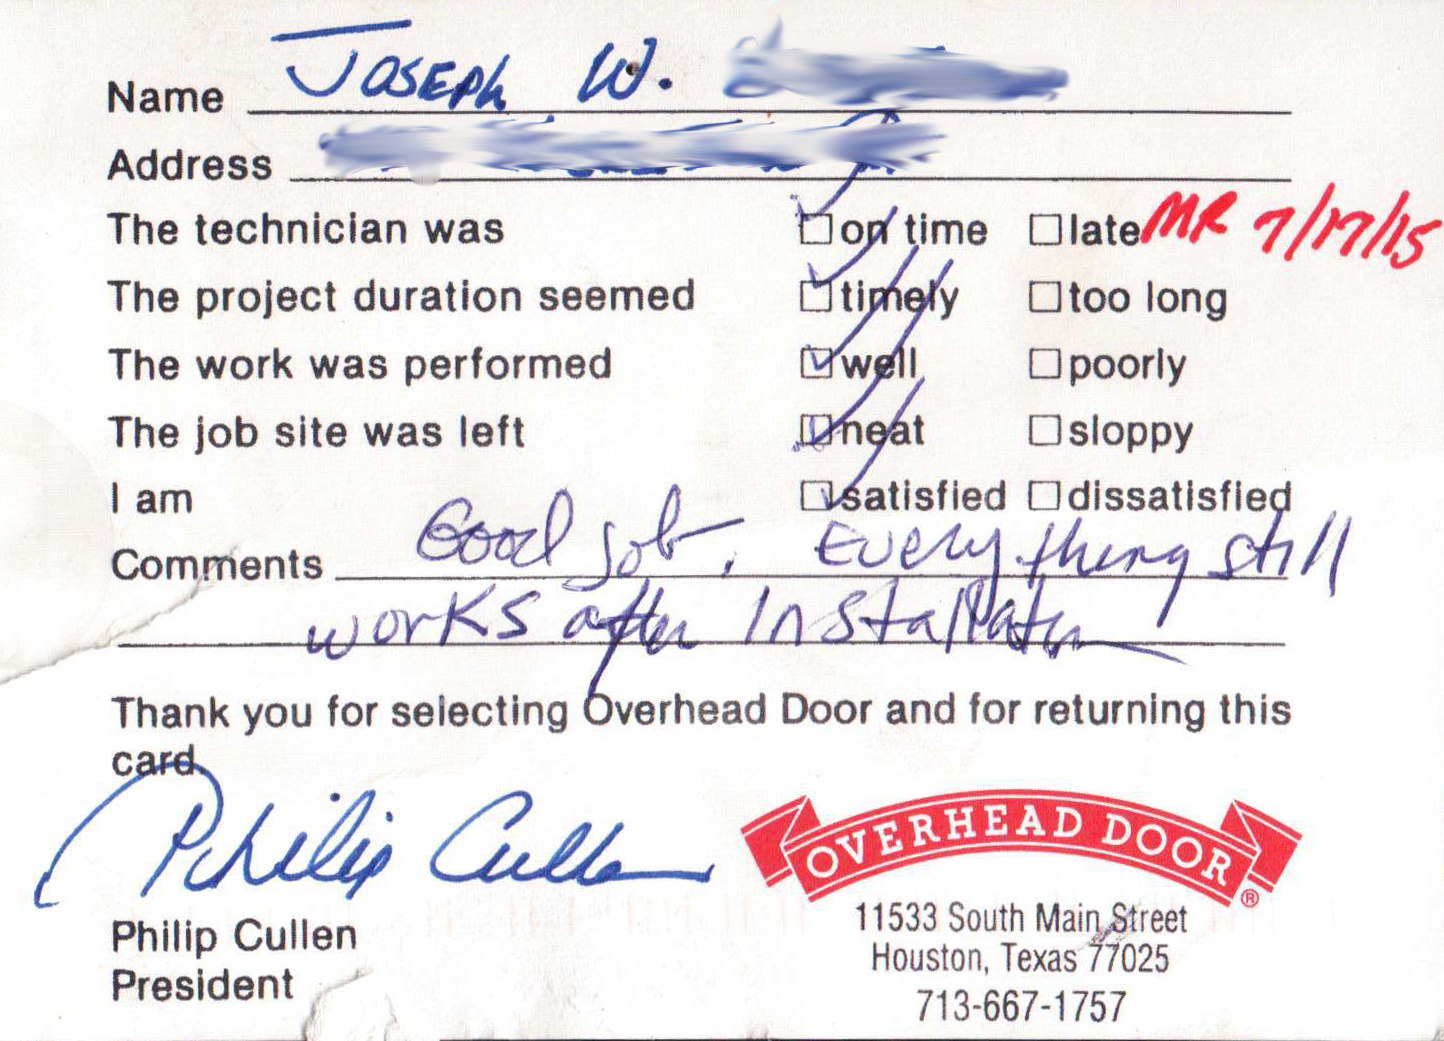 Name JOSEPH W.
Address
The technician was ☐ on time ☐ late MR 7/17/15
The project duration seemed ☐ timely ☐ too long
The work was performed ☐ well ☐ poorly
The job site was left ☐ neat ☐ sloppy
I am ☐ satisfied ☐ dissatisfied
Comments Good job, Everything still
works after Installation
Thank you for selecting Overhead Door and for returning this
card.
Philip Cullen
Philip Cullen
President
OVERHEAD DOOR®
11533 South Main Street
Houston, Texas 77025
713-667-1757